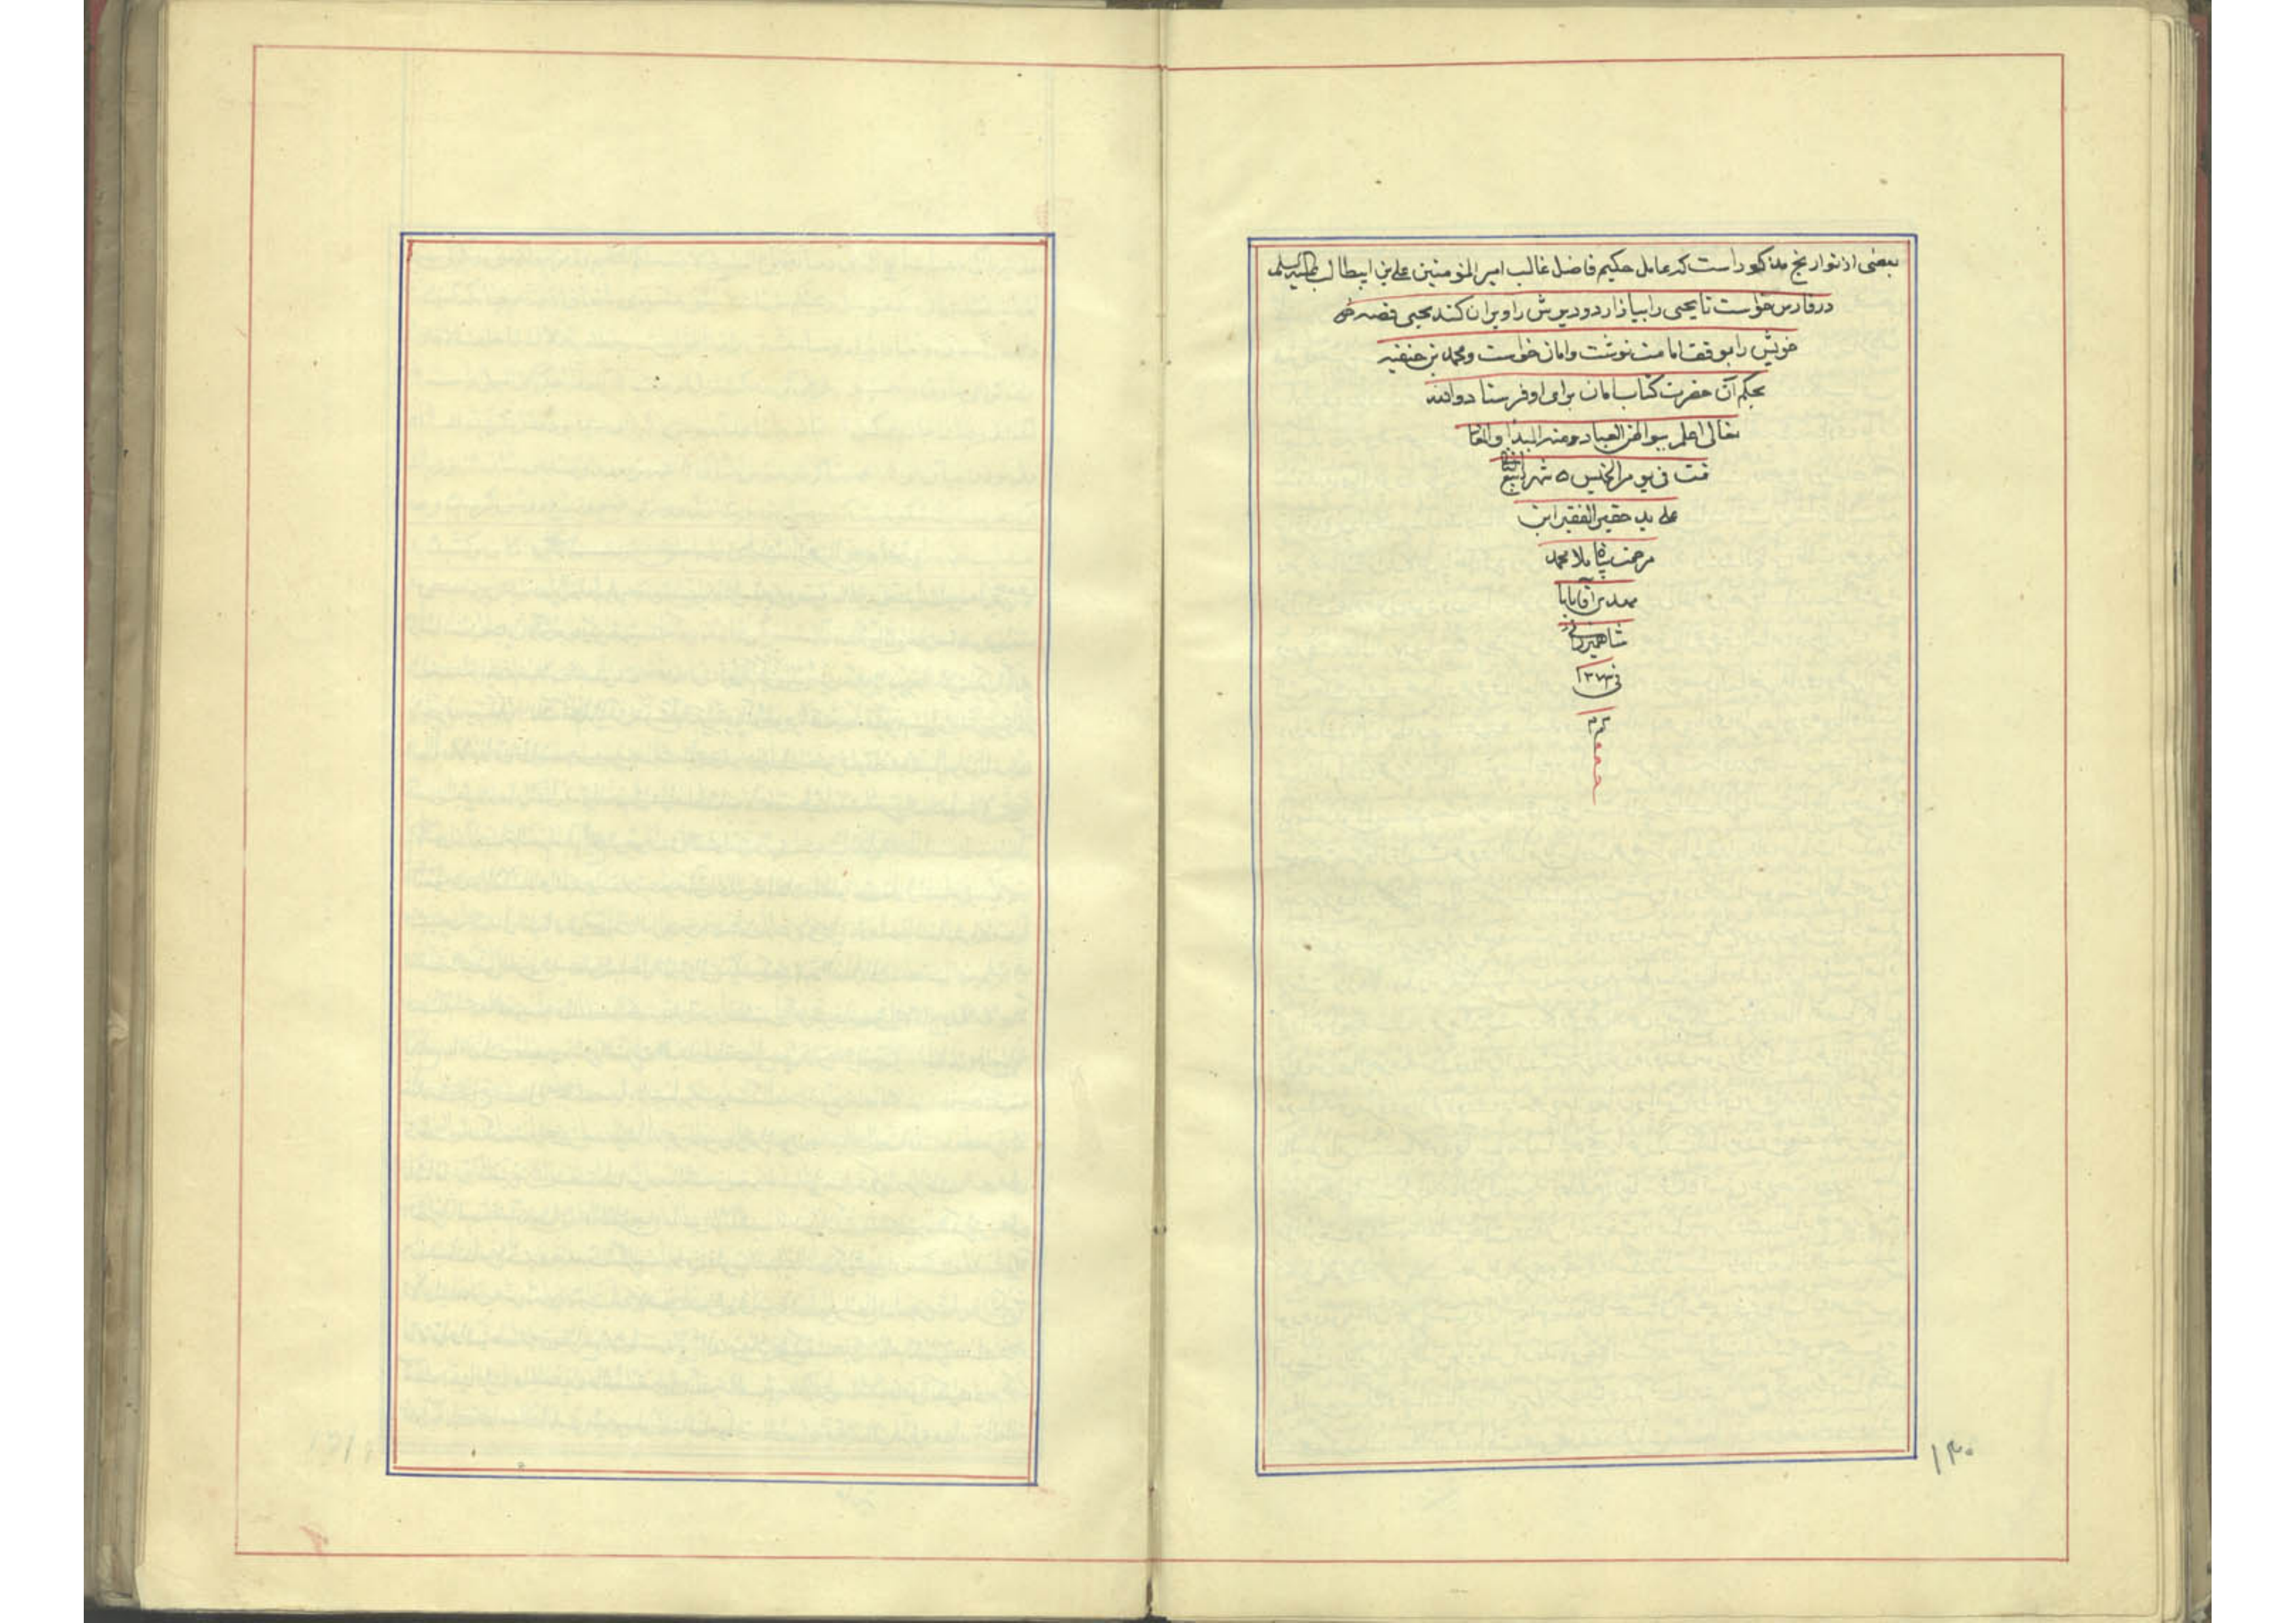 بعضی از تواریخ مذکور است که عامل حکیم فاضل غالب امیر المؤمنین علی بن ابیطالب علیه السلم
در فارس خواست تا یحیی را بیازارد و دیرش را ویران کند یحیی قصه
خویش را بموقف امامت نوشت و امان خواست و محمد بن حنفیه
بحکم آن حضرت کتاب امان برای او فرستاد والله
تعالی اعلم ببواطن العباد و منه المبدا و المعاد
تمت فی یوم الخمیس ۵ شهر
علی ید حقیر الفقیر ابن
مرحمت پناه ملا محمد
بن آقا بابا
شاهمیرزادی
فی ۱۲۷۳
م
۱۴۰